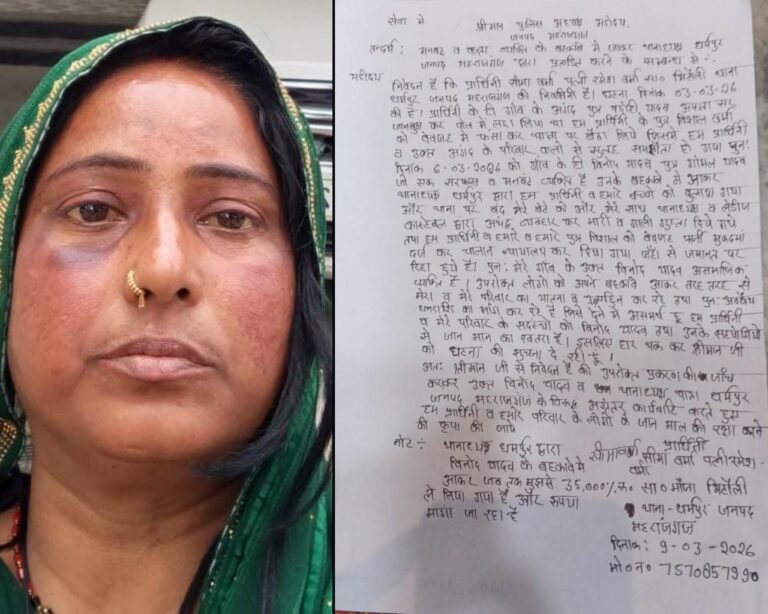 सेवा में
श्रीमान पुलिस अधीक्षक महोदय,
जनपद महराजगंज
सन्दर्भ : मनबढ़ व व्यक्ति के बहकावे में आकर थानाध्यक्ष धर्मपुर
जनपद महराजगंज द्वारा प्रताड़ित करने के सम्बन्ध में :-
महोदय
निवेदन है कि प्रार्थिनी सीमा वर्मा पत्नी रमेश वर्मा सा० थाना
धर्मपुर जनपद महराजगंज की निवासिनी है। घटना दिनांक 03-03-26
की है। प्रार्थिनी के ही गाँव के अंगद पुत्र यादव अपना सर
जानबूझ कर पोल में लड़ा लिया था हम प्रार्थिनी के पुत्र विशाल वर्मा
को बेवजह में फंसा कर थाना पर बैठा लिये जिसमें हम प्रार्थिनी
व उक्त अंगद के परिवार वालों से सुलह समझौता हो गया पुन:
दिनांक 6-03-2026 को गाँव के ही विनोद यादव पुत्र यादव
जो एक व मनबढ़ व्यक्ति है उनके बहकावे में आकर
थानाध्यक्ष धर्मपुर द्वारा हम प्रार्थिनी व हमारे बच्चों को बुलाया गया
और थाना पर बंद मेरे बेटे को और मेरे साथ थानाध्यक्ष व लेडीज
कांस्टेबल द्वारा अभद्र व्यवहार कर मारी व गाली गुप्ता दिये गये
तथा हम प्रार्थिनी व हमारे व हमारे पुत्र विशाल को बेवजह फर्जी मुकदमा
दर्ज कर चालान न्यायालय कर दिया गया जहाँ से जमानत पर
रिहा हुये है। पुन: मेरे गाँव के उक्त विनोद यादव असामाजिक
व्यक्ति है। उपरोक्त लोगों को अपने बहकावे आकर तरह तरह से
मेरा व मेरे परिवार का यातना व उत्पीड़न कर रहे तथा पुन: अवैध
धनराशि का मांग कर रहे हैं जिसे देने में असमर्थ हूँ हम प्रार्थिनी
व मेरे परिवार के सदस्यों को विनोद यादव तथा उनके सहयोगियों
से जान माल का खतरा है। इसलिए हार थक कर श्रीमान जी
को घटना की सूचना दे रही हूँ।
अत: श्रीमान जी से निवेदन है की उपरोक्त प्रकरण की जाँच
कराकर उक्त विनोद यादव व थानाध्यक्ष थाना धर्मपुर
जनपद महराजगंज के विरुद्ध कार्यवाई करते हुये
हम प्रार्थिनी व हमारे परिवार के लोगों के जान माल की रक्षा करने
की कृपा की जाय
नोट :- थानाध्यक्ष धर्मपुर द्वारा
विनोद यादव के बहकावे में
आकर अब तक मुझसे 35,000/. रु०
ले लिया गया है और रूपया
मांगा जा रहा है
प्रार्थिनी
सीमा वर्मा पत्नी रमेश
वर्मा
सा० मौजा
थाना - धर्मपुर जनपद
महराजगंज
दिनांक : 9-03-2026
मो० न० 7570857990